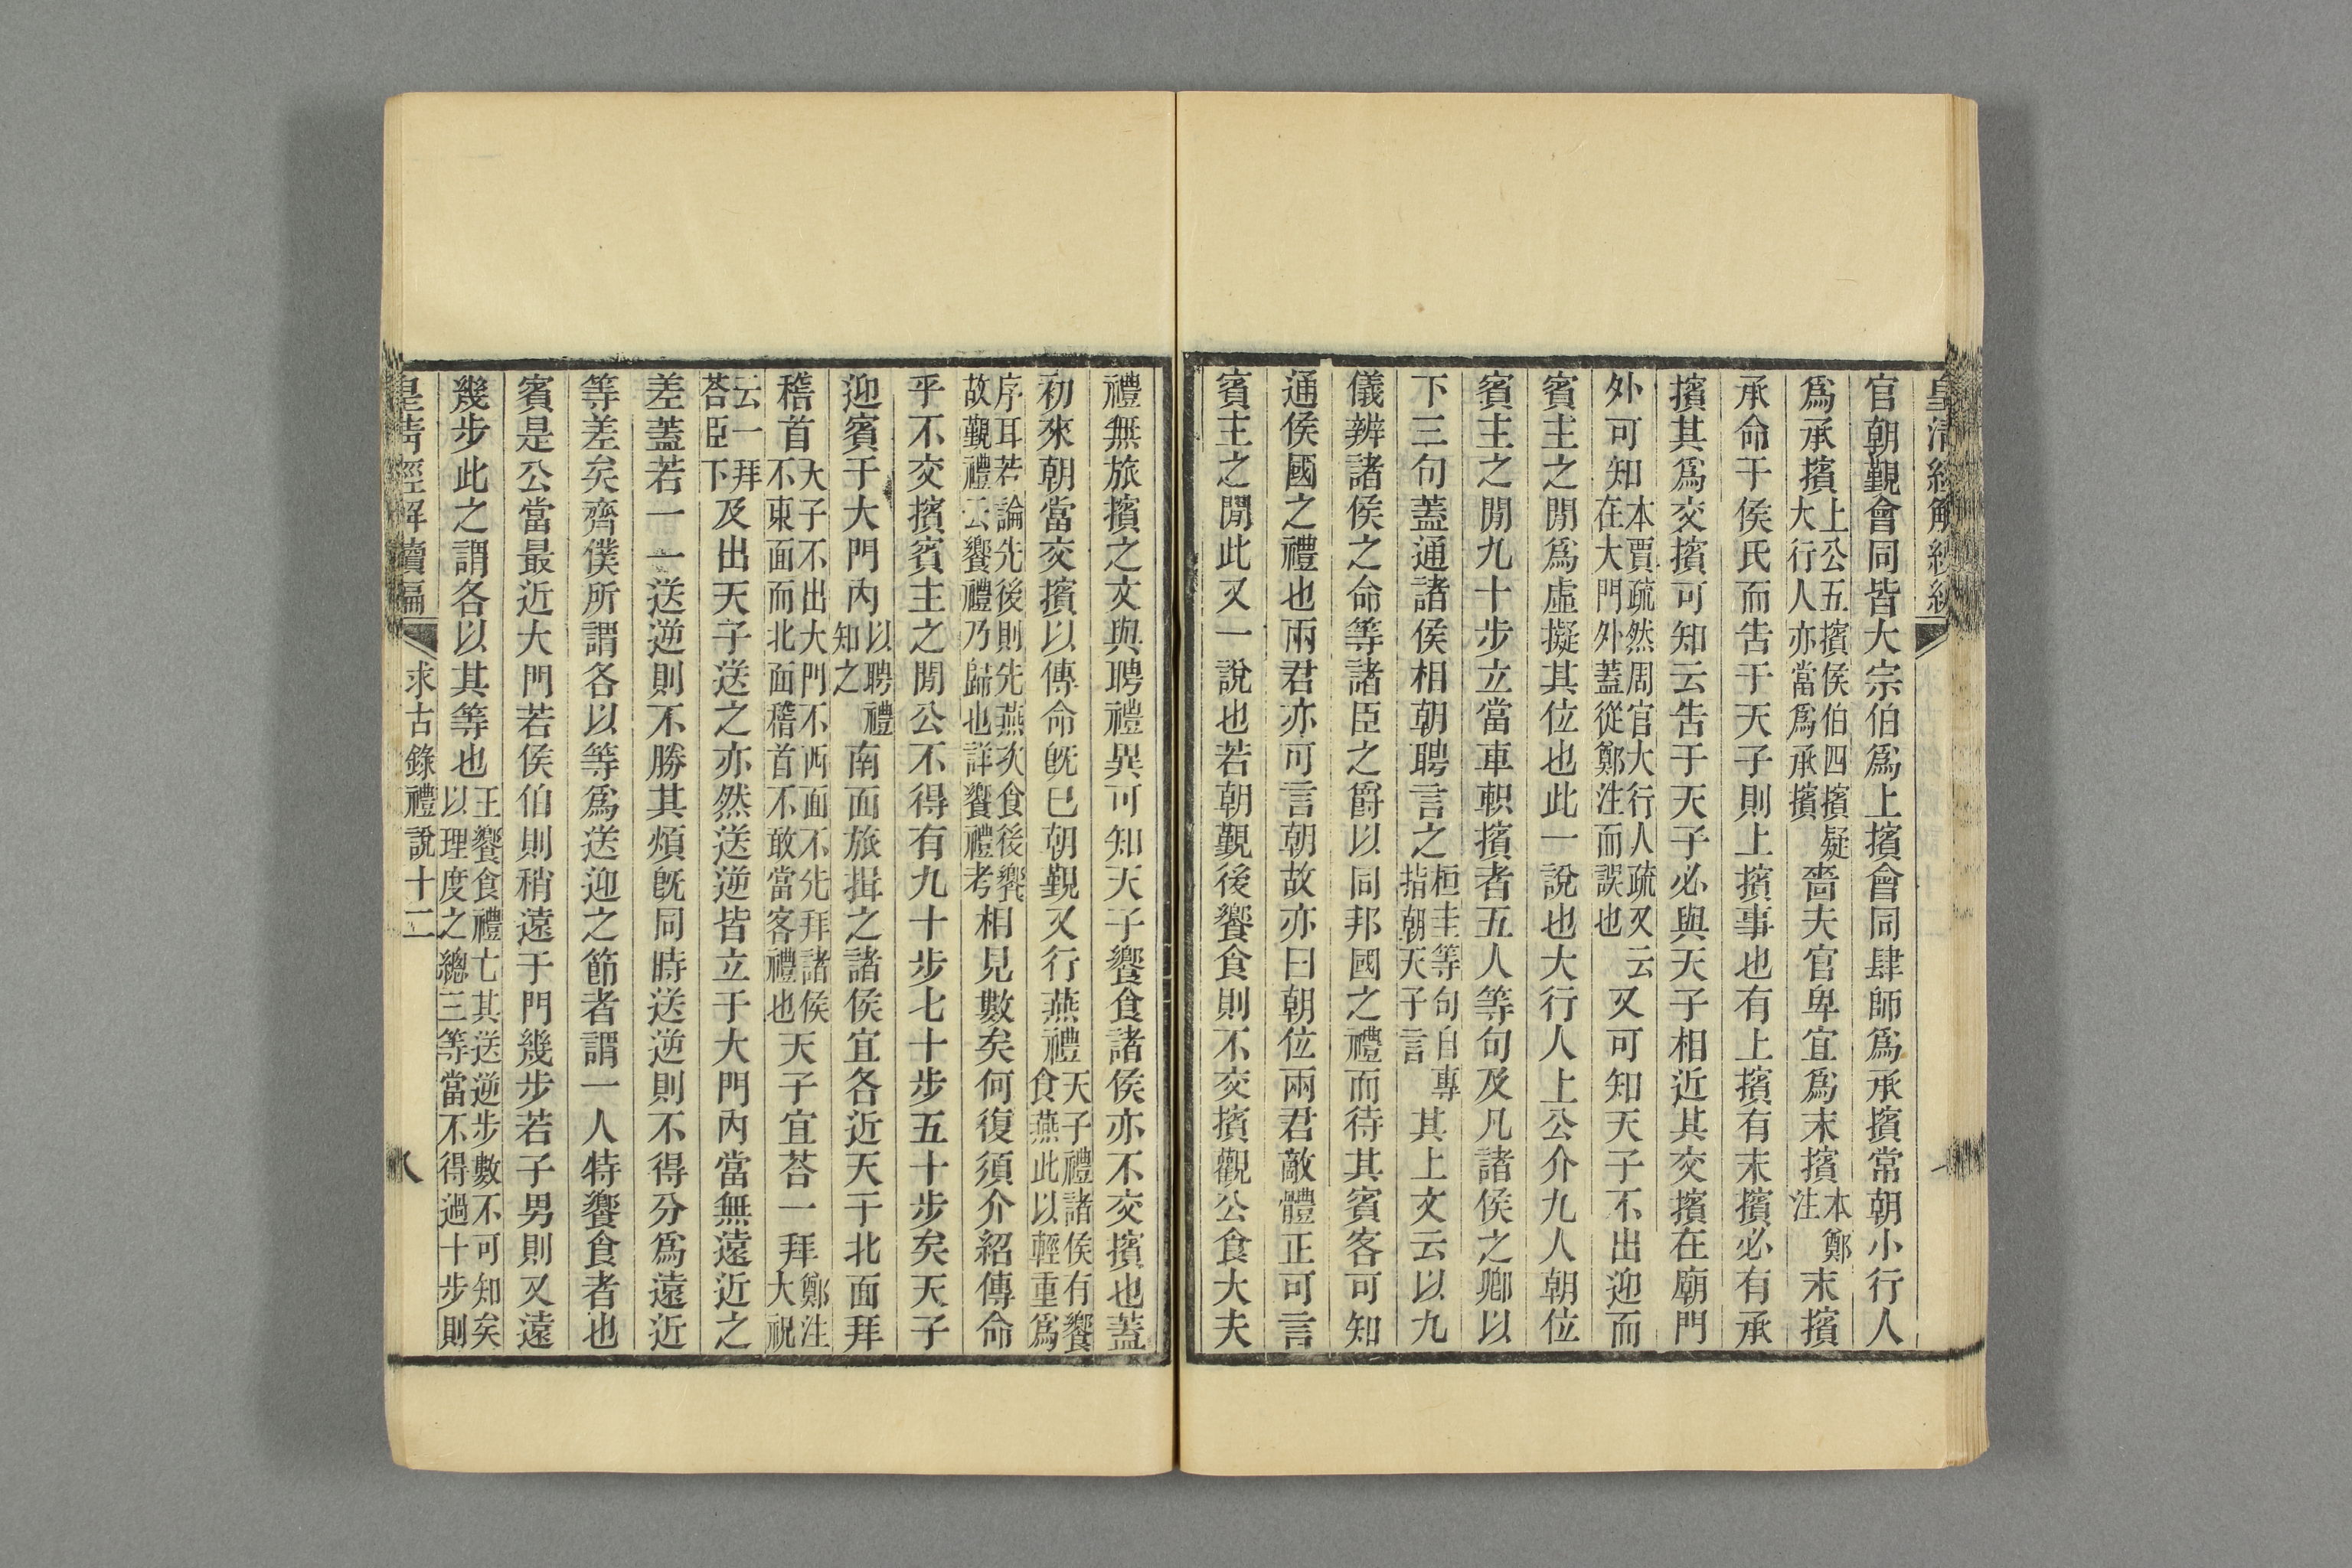 皇清經解續編
官朝覲會同皆大宗伯爲上擯會同肆師爲承擯常朝小行人
爲承擯上公五擯侯伯四擯疑大行人亦當爲承擯嗇夫官卑宜爲末擯本鄭注末擯
承命于侯氏而告于天子則上擯事也有上擯有末擯必有承
擯其爲交擯可知云告于天子必與天子相近其交擯在廟門
外可知本賈疏然周官大行人疏又云在大門外蓋從鄭注而誤也又可知天子不出迎而
賓主之閒爲虛擬其位也此一說也大行人上公介九人朝位
賓主之閒九十步立當車軹擯者五人等句及凡諸侯之卿以
下三句蓋通諸侯相朝聘言之桓圭等句自專指朝天子言其上文云以九
儀辨諸侯之命等諸臣之爵以同邦國之禮而待其賓客可知
通侯國之禮也兩君亦可言朝故亦曰朝位兩君敵體正可言
賓主之閒此又一說也若朝覲後饗食則不交擯觀公食大夫
禮無旅擯之文與聘禮異可知天子饗食諸侯亦不交擯也蓋
初來朝當交擯以傳命旣已朝覲又行燕禮天子禮諸侯有饗食燕此以輕重爲
序耳若論先後則先燕次食後饗故覲禮云饗禮乃歸也詳饗禮考相見數矣何復須介紹傳命
乎不交擯賓主之閒公不得有九十步七十步五十步矣天子
迎賓于大門內以聘禮知之南面旅揖之諸侯宜各近天干北面拜
稽首天子不出大門不西面不先拜諸侯不東面而北面稽首不敢當客禮也天子宜荅一拜鄭注大祝
云一拜荅臣下及出天子送之亦然送逆皆立于大門內當無遠近之
差蓋若一一送逆則不勝其煩旣同時送逆則不得分爲遠近
等差矣齊僕所謂各以等爲送迎之節者謂一人特饗食者也
賓是公當最近大門若侯伯則稍遠于門幾步若子男則又遠
幾步此之謂各以其等也王饗食禮亡其送逆步數不可知矣以理度之總三等當不得過十步則
皇清經解續編 求古錄禮說十二 八